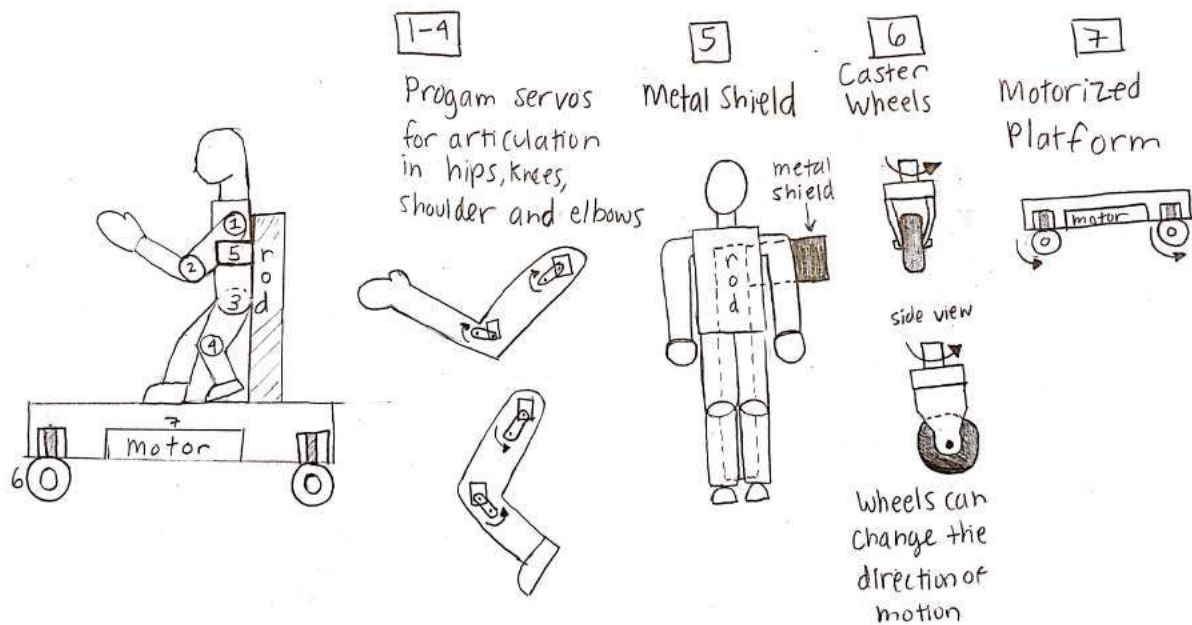 1-4
Progam servos
for articulation
in hips, knees,
shoulder and elbows
5
Metal Shield
metal
shield
rod
6
Caster
Wheels
side view
Wheels can
change the
direction of
motion
7
Motorized
Platform
motor
1
2
5
3
4
rod
7
motor
6